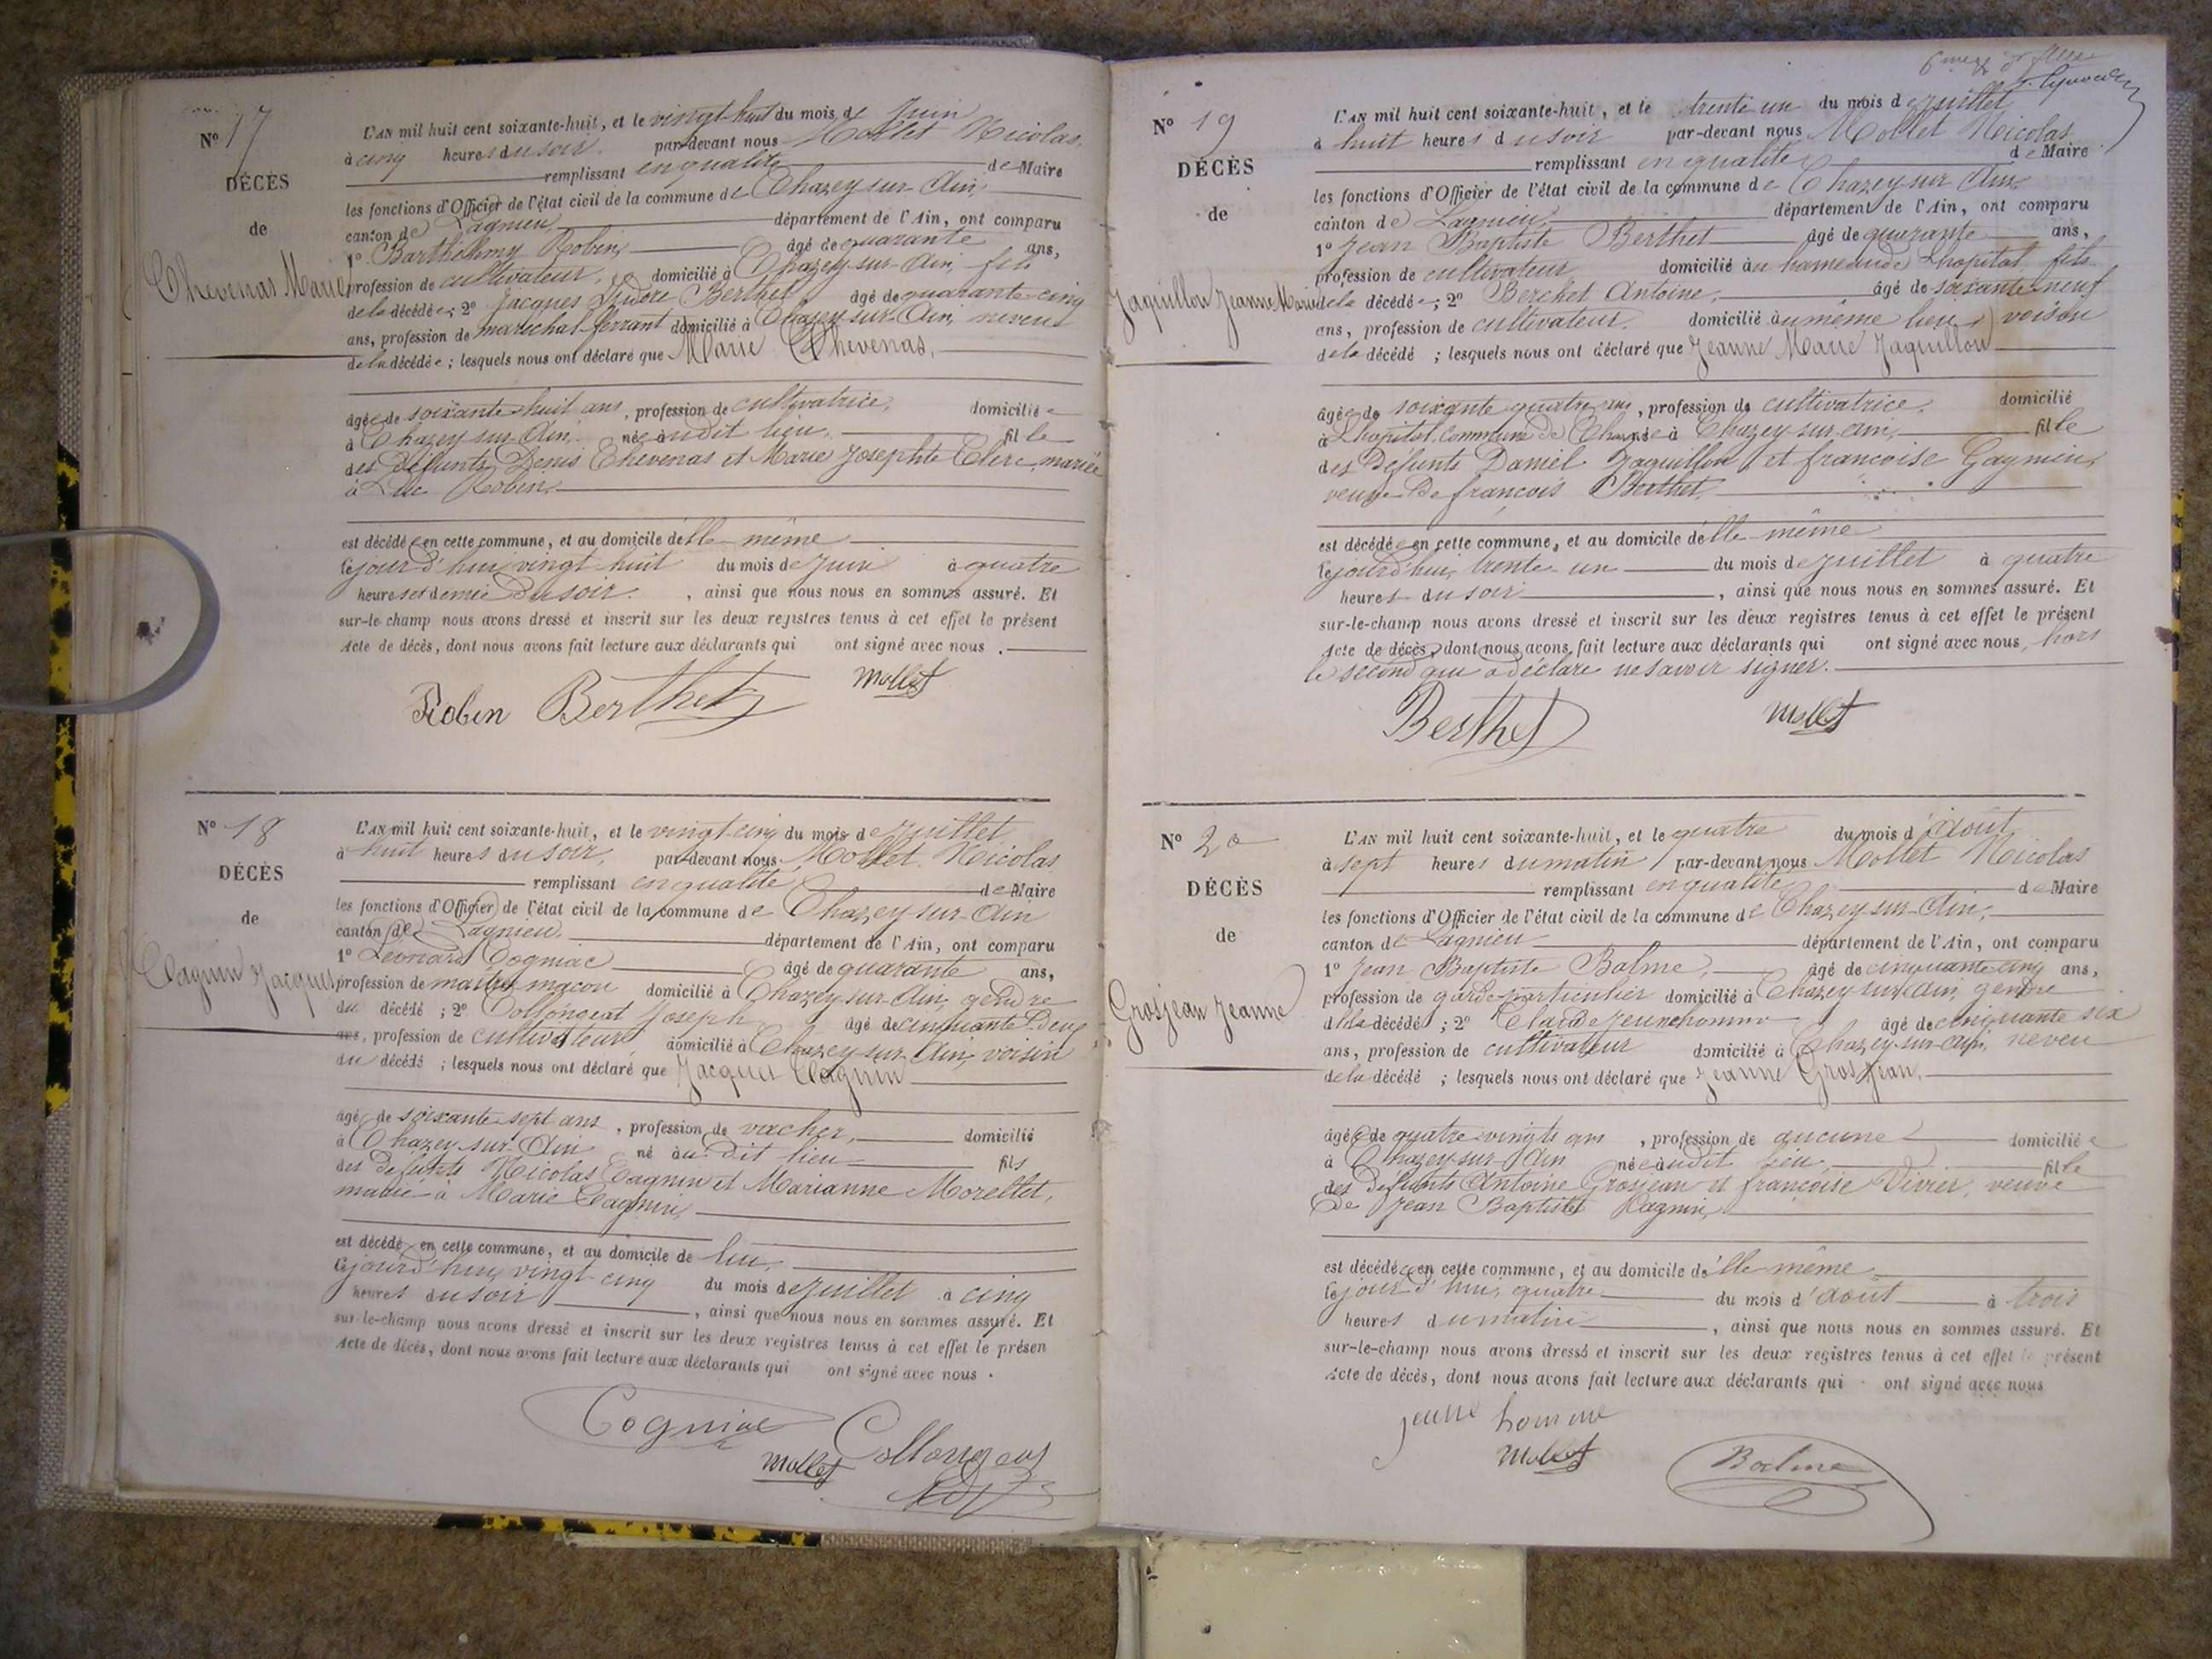 Nº 17
DÉCÈS
de
Chevenas Marie
L'AN mil huit cent soixante-huit, et le vingt-huit du mois de Juin
à cinq heures du soir. par-devant nous Mollet Nicolas,
remplissant en qualité de Maire
les fonctions d'Officier de l'état civil de la commune de Chazey sur Ain,
canton de Lagnieu, département de l'Ain, ont comparu
1º Barthélemy Robin, âgé de quarante ans,
profession de cultivateur, domicilié à Chazey-sur-Ain, fils
de la décédée; 2º Jacques Isidore Berthet âgé de quarante-cinq
ans, profession de maréchal ferrant domicilié à Chazey-sur-Ain, neveu
de la décédée; lesquels nous ont déclaré que Marie Chevenas,
âgée de soixante huit ans, profession de cultivatrice, domiciliée
à Chazey-sur-Ain, née au dit lieu, fille
des défunts Denis Chevenas et Marie Josephte Clerc, mariée
à Luc Robin,
est décédée en cette commune, et au domicile d'elle même
le jour d'hui vingt huit du mois de Juin à quatre
heures et demie du soir, ainsi que nous nous en sommes assuré. Et
sur-le-champ nous avons dressé et inscrit sur les deux registres tenus à cet effet le présent
Acte de décès, dont nous avons fait lecture aux déclarants qui ont signé avec nous.
Robin Berthet Mollet
Nº 18
DÉCÈS
de
Cagnin Jacques
L'AN mil huit cent soixante-huit, et le vingt-cinq du mois de Juillet
à huit heures du soir, par-devant nous Mollet Nicolas
remplissant en qualité de Maire
les fonctions d'Officier de l'état civil de la commune de Chazey-sur-Ain
canton de Lagnieu. département de l'Ain, ont comparu
1º Léonard Cogniac âgé de quarante ans,
profession de maître maçon domicilié à Chazey-sur-Ain, gendre
du décédé; 2º Collongeat Joseph âgé de cinquante deux
ans, profession de cultivateur domicilié à Chazey-sur-Ain, voisin
du décédé; lesquels nous ont déclaré que Jacques Cagnin
âgé de soixante sept ans, profession de vacher, domicilié
à Chazey-sur-Ain né au dit lieu fils
des défunts Nicolas Cagnin et Marianne Mozellet,
marié à Marie Cagnin,
est décédé en cette commune, et au domicile de lui,
le jourd'hui vingt cinq du mois de Juillet à cinq
heures du soir, ainsi que nous nous en sommes assuré. Et
sur-le-champ nous avons dressé et inscrit sur les deux registres tenus à cet effet le présen
Acte de décès, dont nous avons fait lecture aux déclarants qui ont signé avec nous.
Cogniac Collongeat
Mollet
Nº 19
DÉCÈS
de
Jaquillon Jeanne Marie
L'AN mil huit cent soixante-huit, et le trente un du mois de Juillet
à huit heures du soir par-devant nous Mollet Nicolas
remplissant en qualité de Maire
les fonctions d'Officier de l'état civil de la commune de Chazey sur Ain
canton de Lagnieu, département de l'Ain, ont comparu
1º Jean Baptiste Berthet âgé de quarante ans,
profession de cultivateur domicilié au hameau de Lhopital fils
de la décédée; 2º Berchet Antoine, âgé de soixante-neuf
ans, profession de cultivateur. domicilié au même lieu, voisin
de la décédé; lesquels nous ont déclaré que Jeanne Marie Jaquillon
âgée de soixante quatre ans, profession de cultivatrice, domicilié
à Lhopital, commune de Chazey née à Chazey-sur-Ain, fille
des défunts Daniel Jaquillon et francoise Gagnieu,
veuve de francois Berthet,
est décédée en cette commune, et au domicile d'elle même
le jourd'hui, trente un du mois de Juillet à quatre
heures du soir, ainsi que nous nous en sommes assuré. Et
sur-le-champ nous avons dressé et inscrit sur les deux registres tenus à cet effet le présent
Acte de décès, dont nous avons fait lecture aux déclarants qui ont signé avec nous, hors
le second qui a déclaré ne savoir signer.
Berthet Mollet
Nº 20
DÉCÈS
de
Grosjean Jeanne
L'AN mil huit cent soixante-huit, et le quatre du mois d'août
à sept heures du matin par-devant nous Mollet Nicolas
remplissant en qualité de Maire
les fonctions d'Officier de l'état civil de la commune de Chazey-sur-Ain,
canton de Lagnieu département de l'Ain, ont comparu
1º Jean Baptiste Balme, âgé de cinquante cinq ans,
profession de garde-particulier domicilié à Chazey sur Ain, gendre
de la décédé; 2º Claude Jeunehomme âgé de cinquante six
ans, profession de cultivateur domicilié à Chazey-sur-Ain, neveu
de la décédé; lesquels nous ont déclaré que Jeanne Grosjean,
âgée de quatre vingts ans, profession de aucune domiciliée
à Chazey-sur-Ain née au dit lieu, fille
des défunts Antoine Grosjean et francoise Vivier, veuve
de Jean Baptiste Ragnin,
est décédée en cette commune, et au domicile d'elle même
le jourd'hui, quatre du mois d'août à trois
heures du matin, ainsi que nous nous en sommes assuré. Et
sur-le-champ nous avons dressé et inscrit sur les deux registres tenus à cet effet le présent
Acte de décès, dont nous avons fait lecture aux déclarants qui ont signé avec nous
jeune homme
Mollet Balme